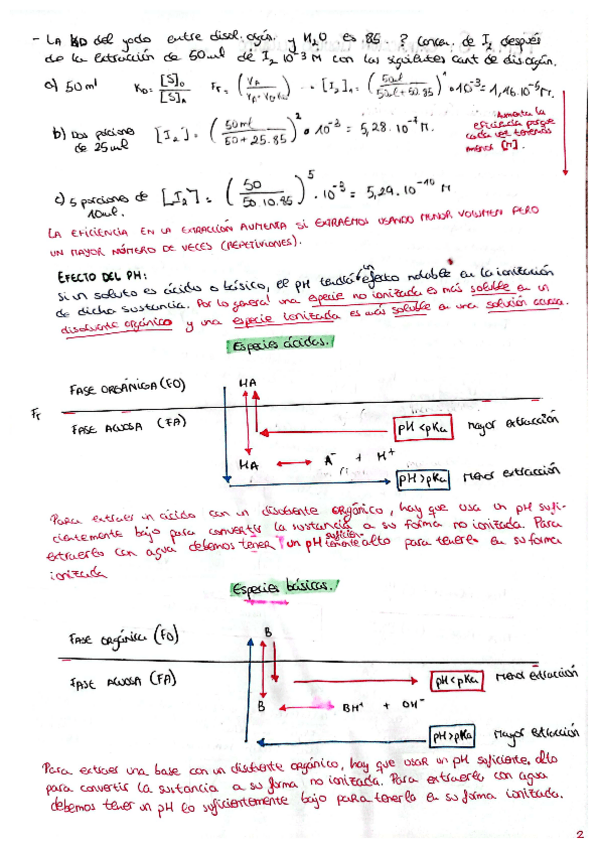 - La KD del yodo entre disol. orgán. y H2O es 85. ? Concen. de I2 después
de la extracción de 50 ml de I2 10^-3 M con las siguientes cant de dis orgán.
a) 50 ml KD = [S]o / [S]A Fr = (VA / VA + VO KD) [I2]1 = (50ml / 50ml + 50.85)^1 . 10^-3 = 1,16.10^-5 M
b) Dos porciones de 25 ml [I2] = (50 ml / 50 + 25.85)^2 . 10^-3 = 5,28.10^-7 M.
Aumenta la
eficiencia porque
cada vez tenemos
menos [M].
c) 5 porciones de 10 ml. [I2] = (50 / 50.10.85)^5 . 10^-3 = 5,29.10^-10 M
LA EFICIENCIA EN LA EXTRACCIÓN AUMENTA SI EXTRAEMOS USANDO MENOR VOLUMEN PERO
UN MAYOR NÚMERO DE VECES (REPETICIONES).
EFECTO DEL PH:
si un soluto es ácido o básico, el pH tendrá un efecto notable en la ionización
de dicha sustancia. Por lo general una especie no ionizada es más soluble en un
disolvente orgánico y una especie ionizada es más soluble en una solución acuosa.
Especies ácidas.
FASE ORGÁNICA (FO) HA
Fr
FASE ACUOSA (FA) pH < pKa Mayor extracción
HA A^- + H^+
pH > pKa Menor extracción
Para extraer un ácido con un disolvente orgánico, hay que usa un pH sufi-
cientemente bajo para convertir la sustancia a su forma no ionizada. Para
extraerlo con agua debemos tener un pH suficientemente alto para tenerlo en su forma
ionizada
Especies básicas.
FASE ORGÁNICA (FO) B
FASE ACUOSA (FA) pH < pKa Menor extracción
B BH^+ + OH^-
pH > pKa Mayor extracción
Para extraer una base con un disolvente orgánico, hay que usar un pH suficiente. alto
para convertir la sustancia a su forma no ionizada. Para extraerlo con agua
debemos tener un pH lo suficientemente bajo para tenerla en su forma ionizada.
2